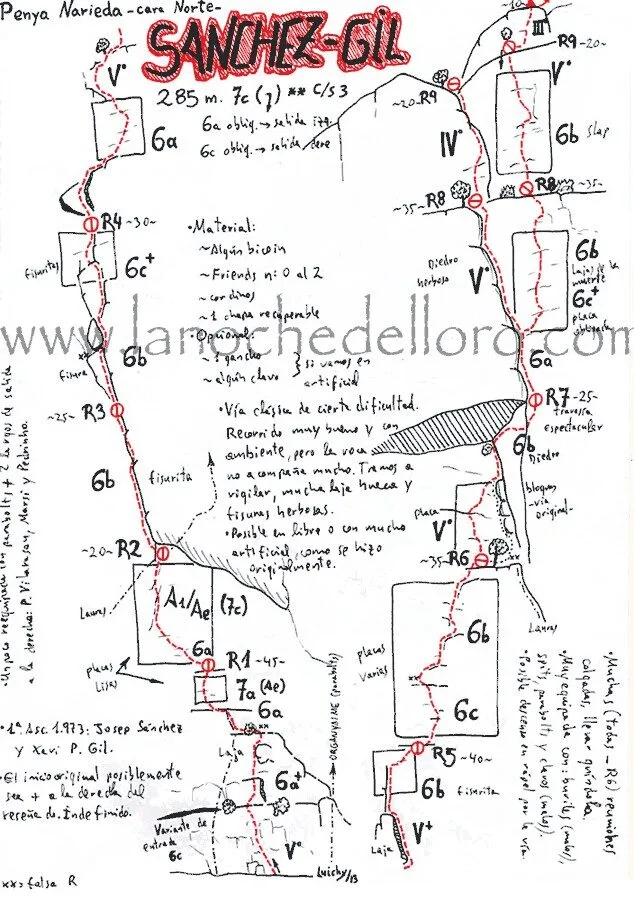 Penya Narieda - cara Norte -
SANCHEZ-GIL
285 m. 7c (?) ** C/S 3
6a obliq. → salida izq.
6c obliq. → salida dere
• Material:
~ Algún bicoin
~ Friends n: 0 al 2
~ cordinos
~ 1 chapa recuperable
• Opcional:
~ 1 gancho
~ algún clavo
si vamos en
artificial
www.lanochedelloro.com
• Vía clásica de cierta dificultad.
Recorrido muy bueno y con
ambiente, pero la roca
no acompaña mucho. Tramos a
vigilar, mucha laja hueca y
fisuras herbosas.
• Posible en libre o con mucho
artificial, como se hizo
originalmente.
V°
6a
R4 ~30~
fisuritas
6c+
6b
fisura
xx
~25~ R3
6b
fisurita
~20~ R2
Lauras
A1/Ae (7c)
6a
placas
lisas
R1 ~45~
7a (Ae)
6a
xx
Laja
6a+
Variante de
entrada
6c
V°
Luichy/13
• 1ª Asc. 1.973: Josep Sánchez
y Xavi P. Gil.
• El inicio original posiblemente
sea + a la derecha del
reseñado. Indefinido.
xx = falsa R
• Vía reequipada con parabolts + 2 largos de salida
a la derecha: P. Vilarasau, Marsi y Pedrinho.
~10~
III
R9 ~20~
V°
6b slap
~20~ R9
IV°
~35~ R8
R8 ~35~
Diedro
herboso
V°
6b
Lajas de la
muerte
6c+
placa
obligada
6a
R7 ~25~
travesía
espectacular
6b
Diedro
bloques
-vía
original-
placa
V°
~35~ R6
Lauras
placas
varias
6b
xx
6c
R5 ~40~
6b fisurita
Laja
V+
• Muchas (todas - R6) reuniones
colgadas, llevar guindola.
• Muy equipada con: buriles (malos),
spits, parabolts y clavos (malos).
• Posible descenso en rápel por la vía.